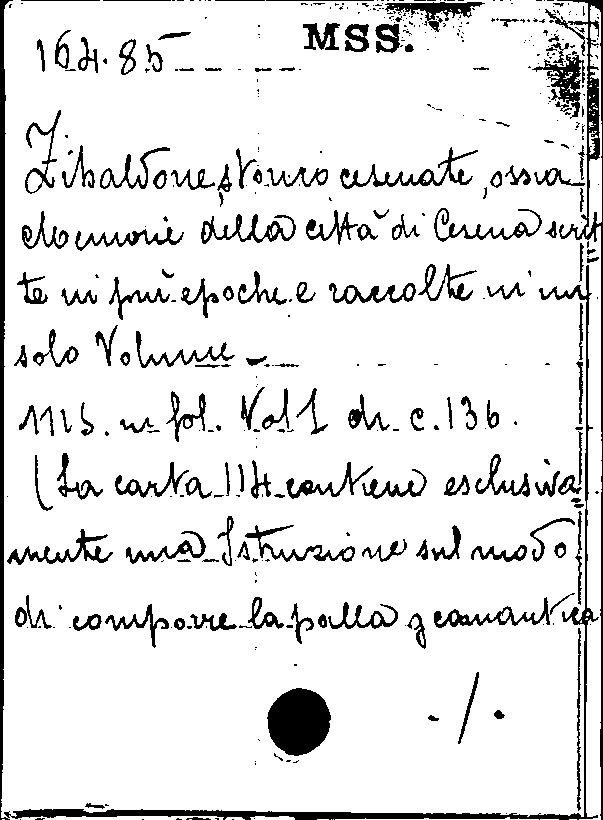 164.85
MSS.
Zibaldone, storico cesenate, ossia
Memorie della città di Cesena scrit
te in più epoche e raccolte in un
solo Volume -
MS. in fol. Vol 1 di c. 136.
(La carta 114 contiene esclusiva
mente una Istruzione sul modo
di comporre la palla geomantica
./.